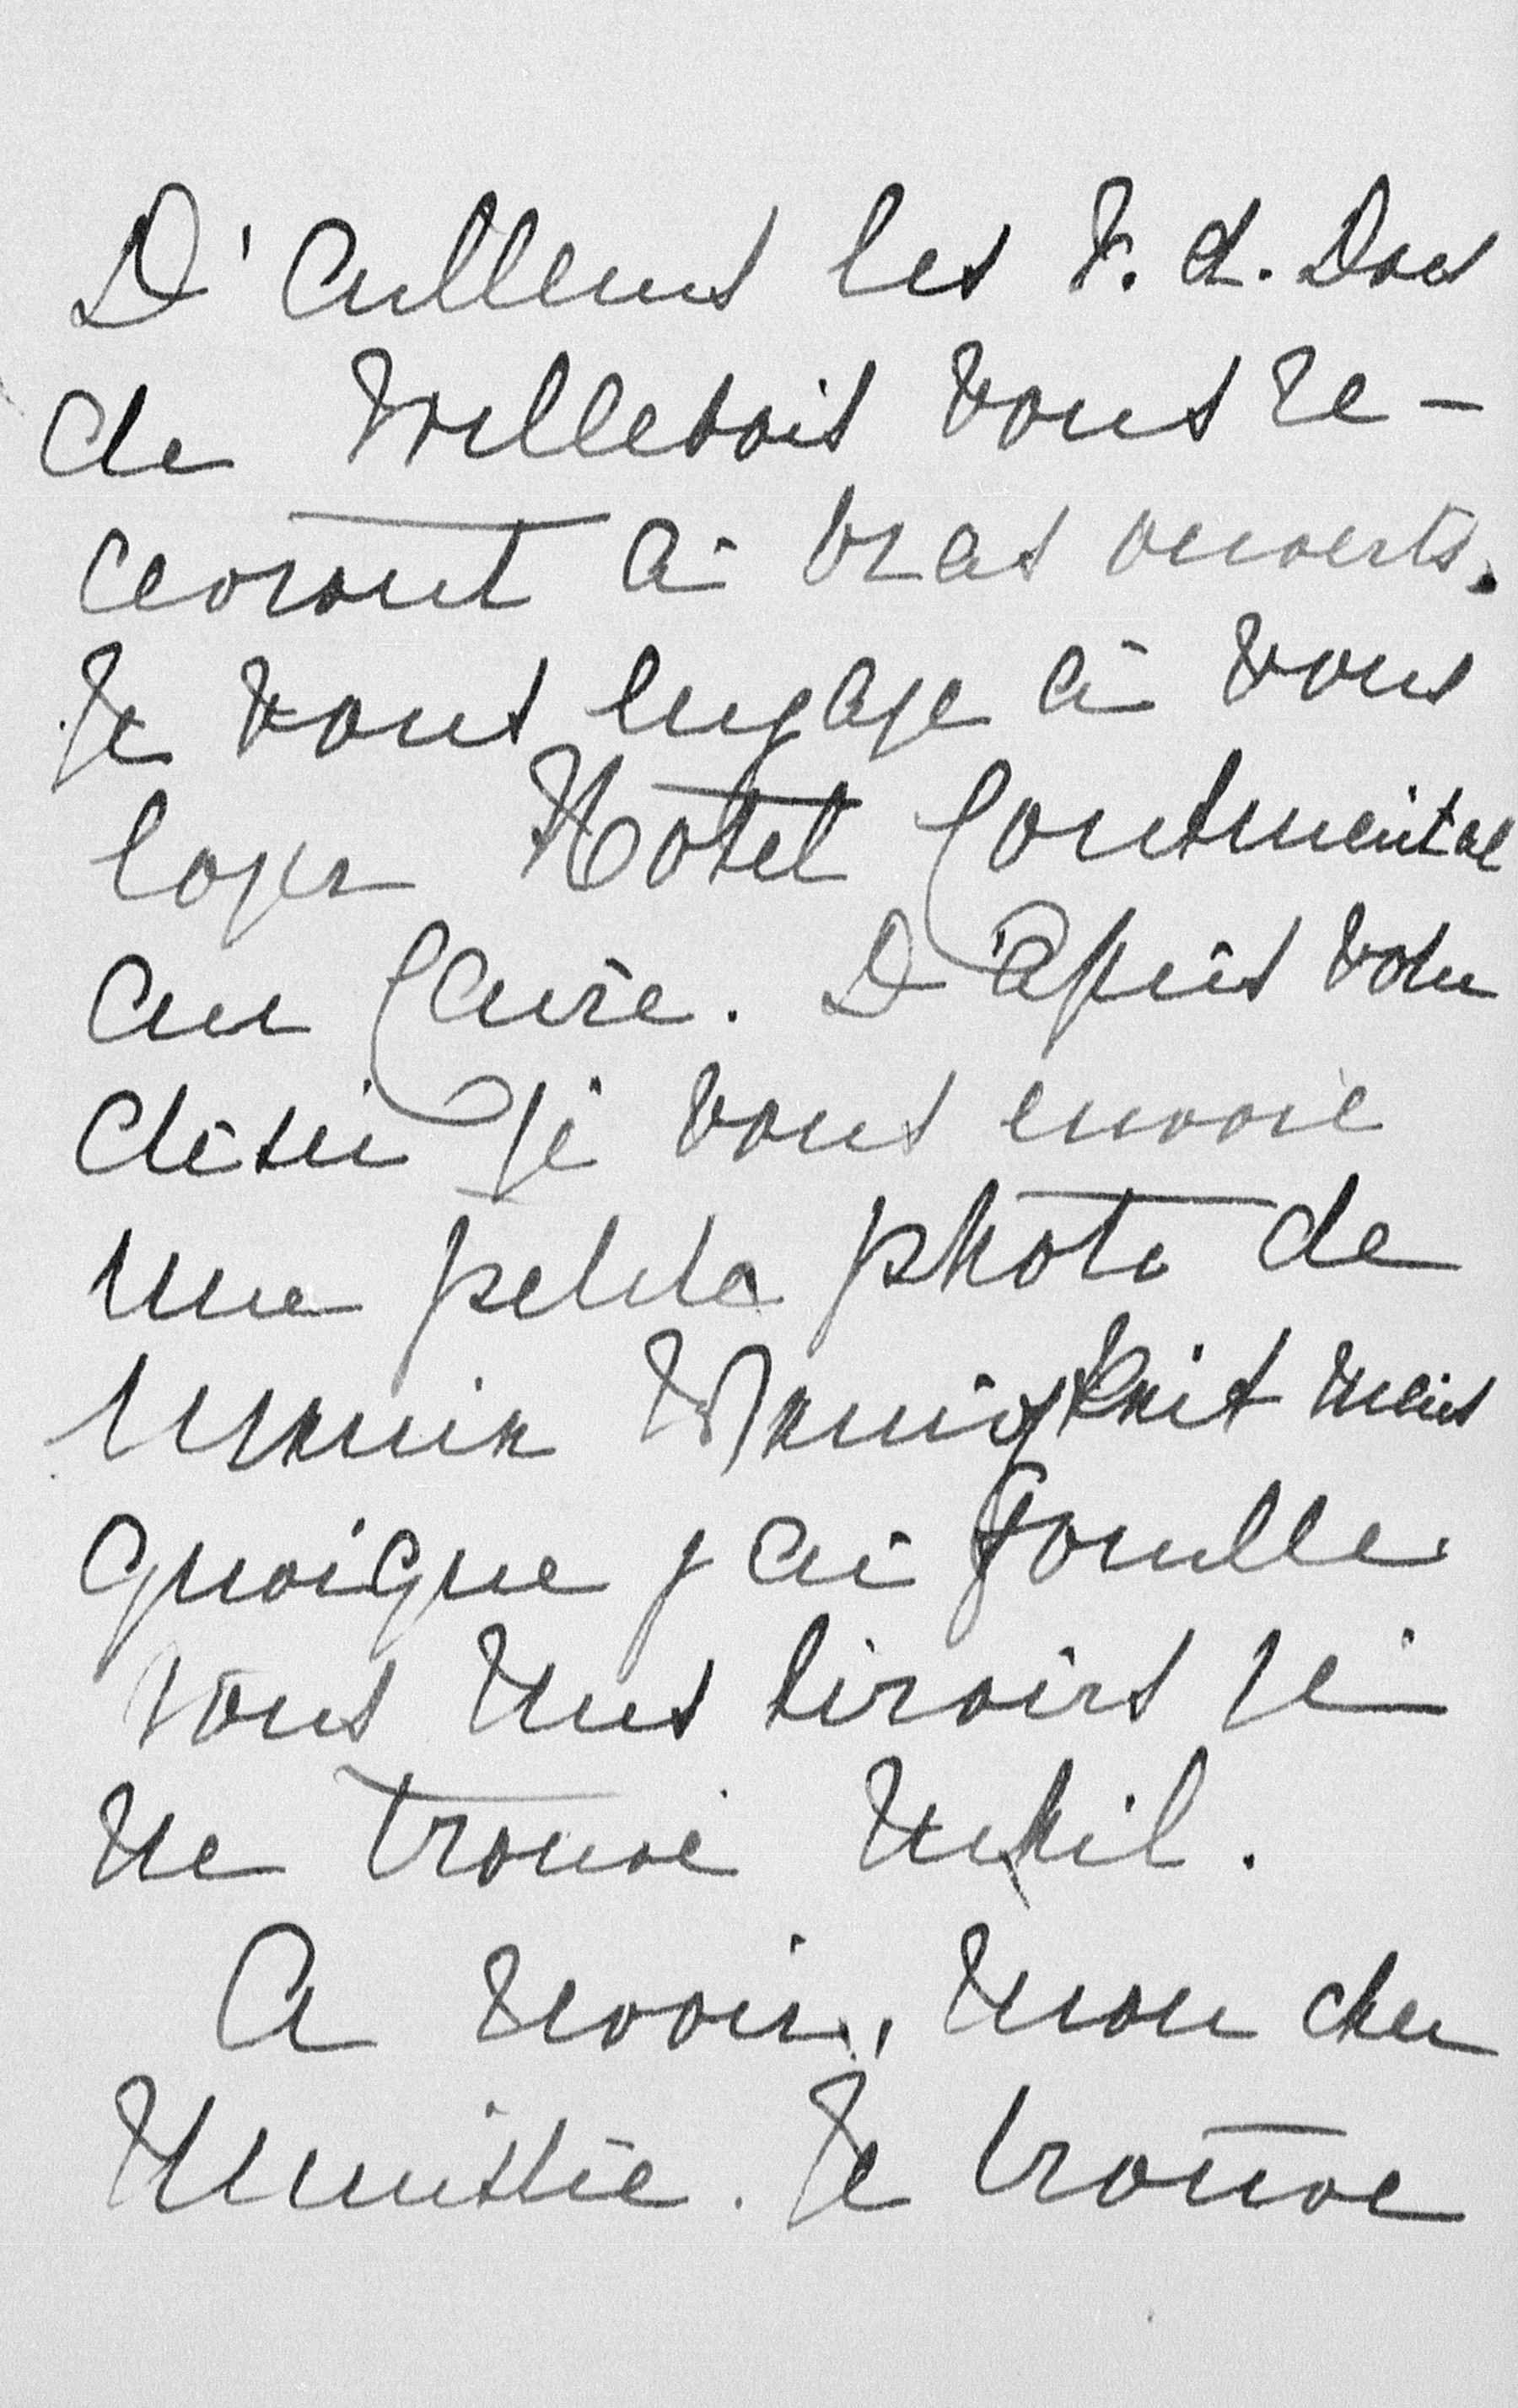 D'ailleurs les v. d. Does
de Willebois vous re-
cevront à bras ouverts.
Je vous engage à vous
loger Hôtel Continental
au Caire. D'après votre
désir je vous envoie
une petite photo de
mais
quoique j'ai fouillé
tous mes tiroirs je
ne trouve
A revoir, mon cher
Ministre. Je trouve